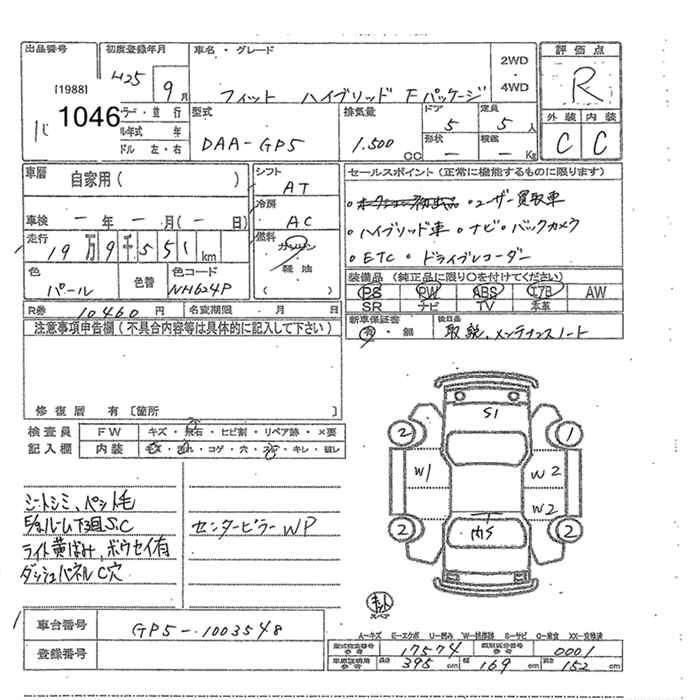 出品番号 初度登録年月 車名・グレード 評価点
[1988] H25 9月 フィット ハイブリッド Fパッケージ 2WD・4WD R
1046
型式 DAA-GP5 排気量 1.500 cc ドア 5 定員 5人 外装 内装
形状 ― 積載 ― Kg C C
年式 年
ドル 左・右
車歴 自家用( ) シフト AT セールスポイント(正常に機能するものに限ります)
車検 ー年 ー月(ー日) 冷房 AC ・ユーザー買取車
・ハイブリッド車 ・ナビ・バックカメラ
走行 19万9千551km 燃料 ガソリン 軽油 ( )
・ETC ・ドライブレコーダー
色 パール 色替 色コード NH624P
装備品(純正品に限り○を付けてください)
PS PW ABS エアB AW
SR ナビ TV 本革
R券 10460円 名変期限 ・ 月 日
新車保証書 有・無 後日品 取説、メンテナンスノート
注意事項申告欄(不具合内容等は具体的に記入して下さい)
修復歴 有[箇所 ]
検査員 FW キズ・飛石・ヒビ割・リペア跡・×要
記入欄 内装 キレ・破レ
S1
2 1
W1 W2
W2
2 2
内S
シートシミ、ペット毛
ルーム下廻S.C センターピラーWP
ライト黄ばみ、ボウセイ有
ダッシュパネルC穴
スペア
車台番号 GP5-1003548
登録番号
A-キズ E-エクボ U-凹み W-補修跡 S-サビ C-腐食 XX-交換済
型式指定番号 参考 17574 類別区分番号 参考 0001
車庫証明用 参考 長さ 395cm 幅 169cm 高さ 152cm